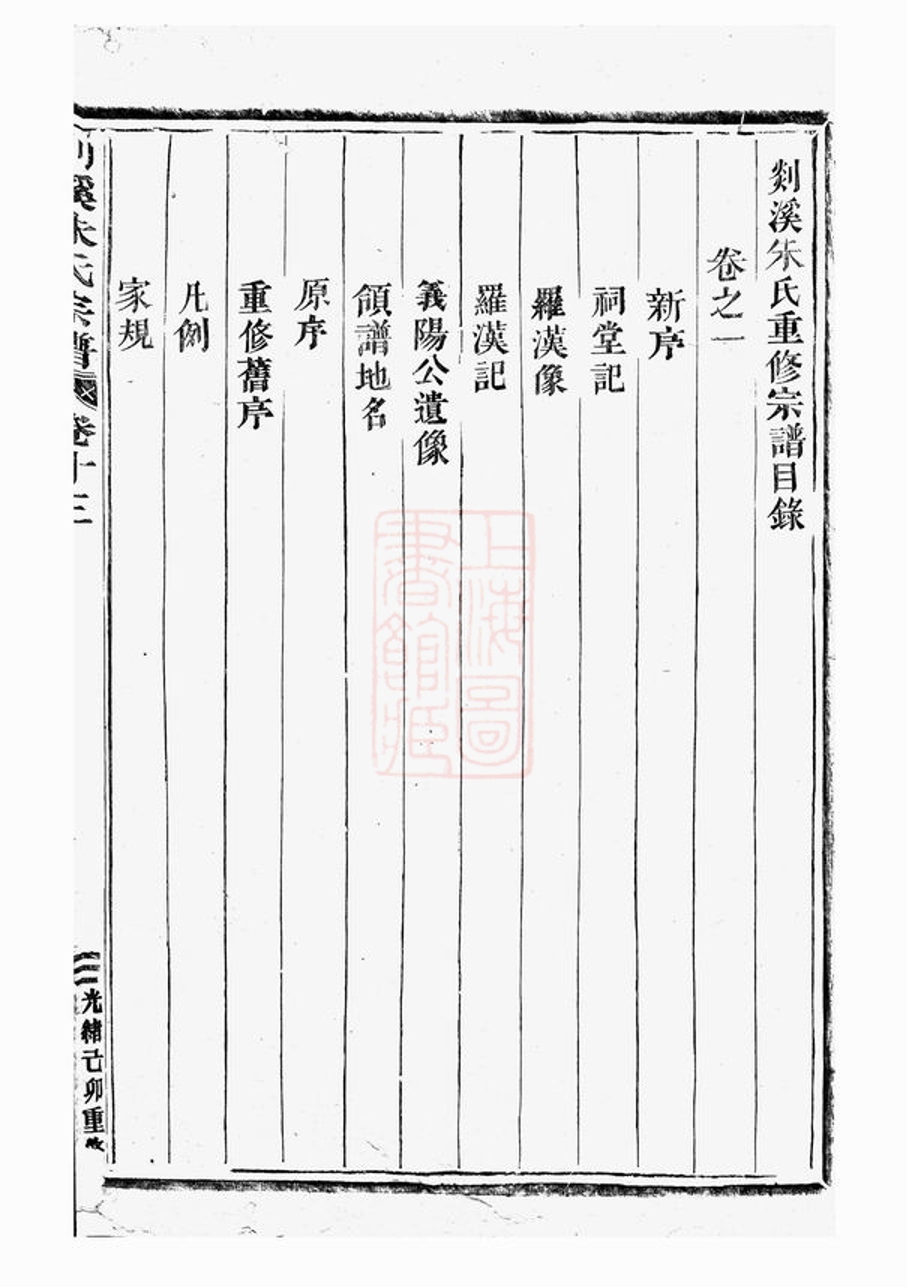 剡溪朱氏重修宗譜目錄
卷之一
新序
祠堂記
羅漢像
羅漢記
義陽公遺像
領譜地名
原序
重修舊序
凡例
家規
剡溪朱氏宗譜 卷十三
光緒己卯重
上海圖
書館藏